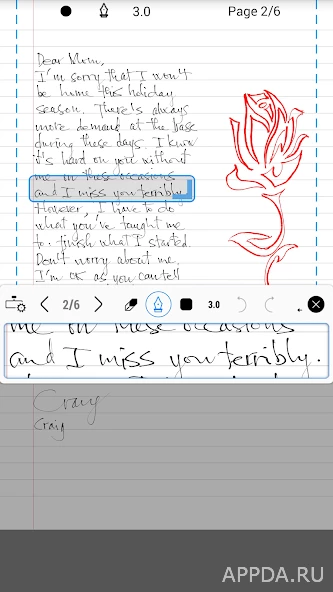 3.0
Page 2/6
Dear Mom,
I'm sorry that I won't
be home this holiday
season. There's always
more demand at the base
during these days. I know
it's hard on you without
me in these occasions
and I miss you terribly.
However, I have to do
what you've taught me
to. finish what I started.
Don't worry about me,
I'm OK as you can tell
2/6
3.0
me in these occasions
and I miss you terribly.
Craig
Craig
APPDA.RU